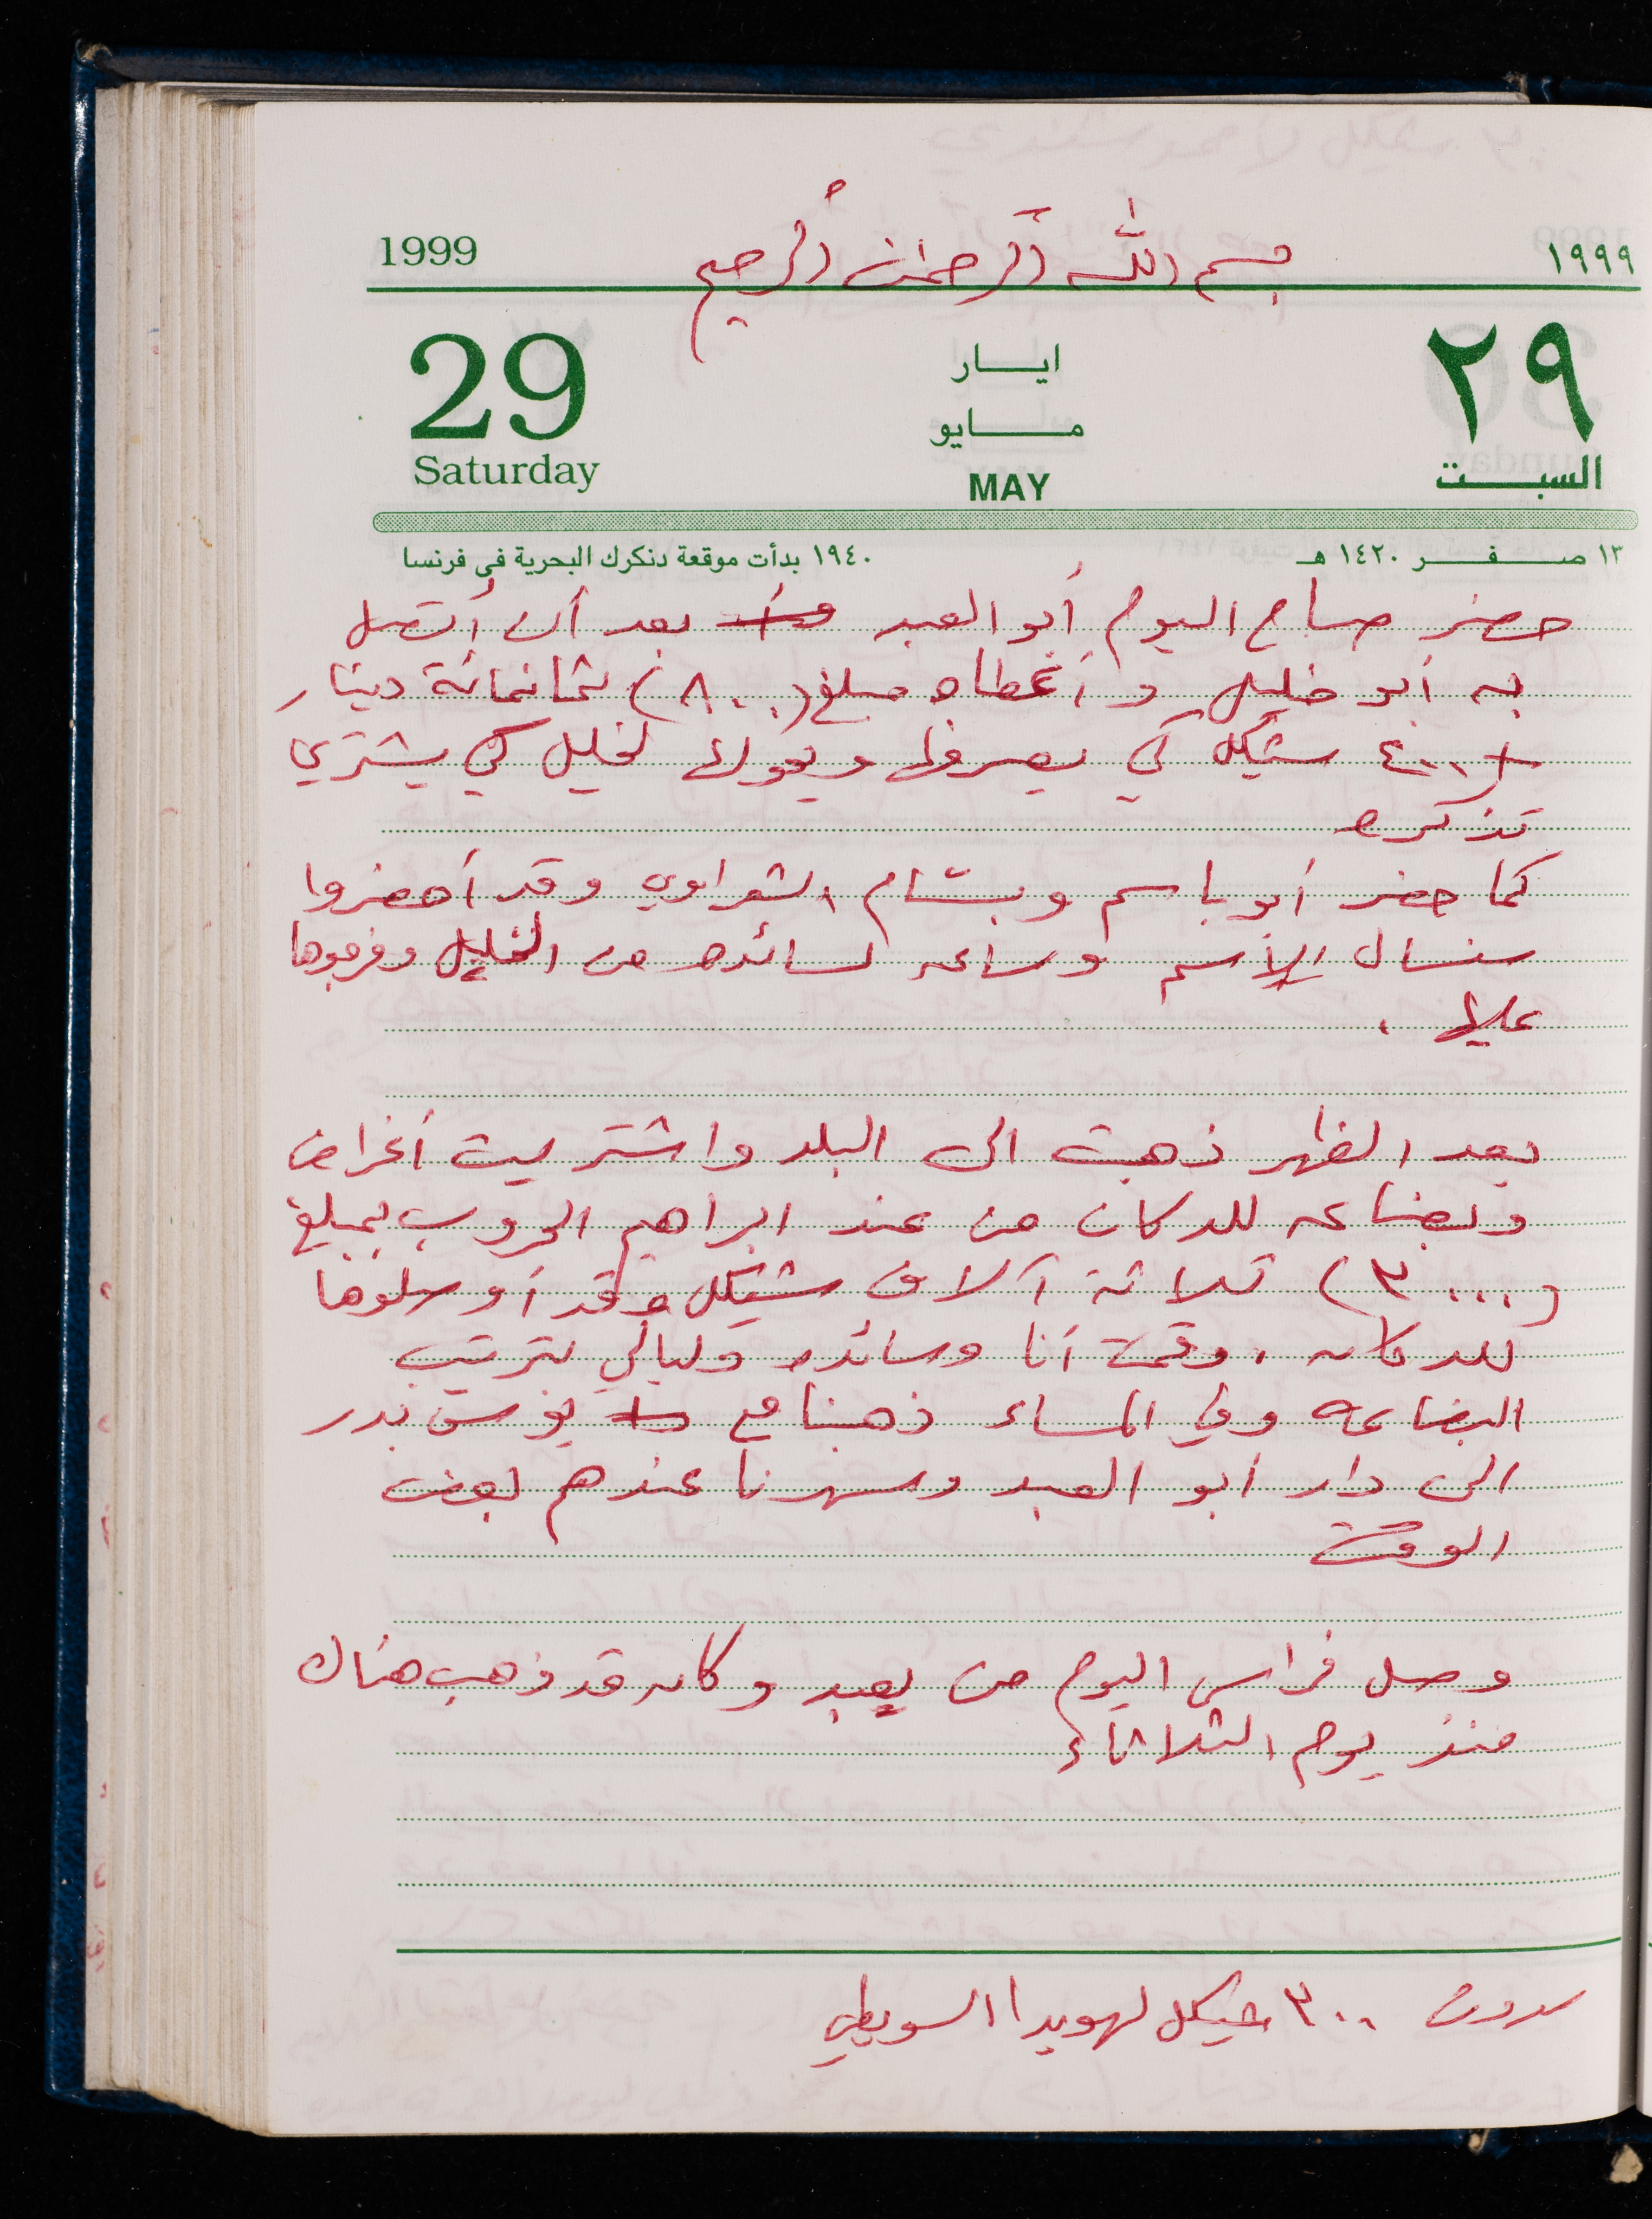 بسم الله الرحمن الرحيم
1999 ١٩٩٩
29 ايار ٢٩
مايو
Saturday MAY السبت
١٣ صفر ١٤٢٠ هـ ١٩٤٠ بدأت موقعة دنكرك البحرية في فرنسا
حضر صباح اليوم أبو العبد بعد أن أتصل
به أبو خليل وأعطاه مبلغ (٨٠٠) ثمانمائة دينار
+ ٤٠٠ شيكل كي يصرفها ويحولها لخليل كي يشتري
تذكره
كما حضر أبو باسم وبسام الشعراوي وقد أحضروا
سنسال الأسم وساعه لسائده من الخليل وفرجوها
عليها .
بعد الظهر ذهبت الى البلد واشتريت أغراض
وبضاعه للدكان من عند ابراهيم الحروب بمبلغ
(٣٠٠٠) ثلاثة آلاف شيكل وقد أوصلوها
للدكان . وقمت أنا وسائده وليالي بترتيب
البضاعه وفي المساء ذهبنا مع يونس بدر
الى دار ابو العبد وسهرنا عندهم لبعض
الوقت
وصل فراس اليوم من يعبد وكان قد ذهب هناك
منذ يوم الثلاثاء
سددت ٣٠٠ شيكل لهويدا السويطي